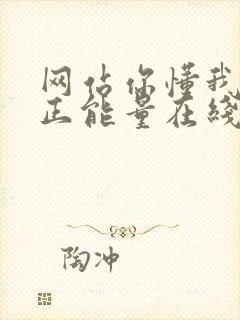 网站你懂我
正能量在线
陶冲